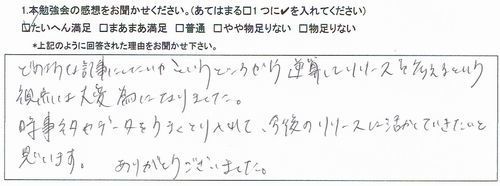 1.本勉強会の感想をお聞かせください。(あてはまる□1つに✔を入れてください)
☑たいへん満足 □まあまあ満足 □普通 □やや物足りない □物足りない
*上記のように回答された理由をお聞かせ下さい。
どのような記事にしたいか というところから 逆算してリリースを考えるという
視点は大変 為になりました。
時事ネタやデータをうまくとり入れて、今後のリリースに活かしていきたいと
思います。 ありがとうございました。